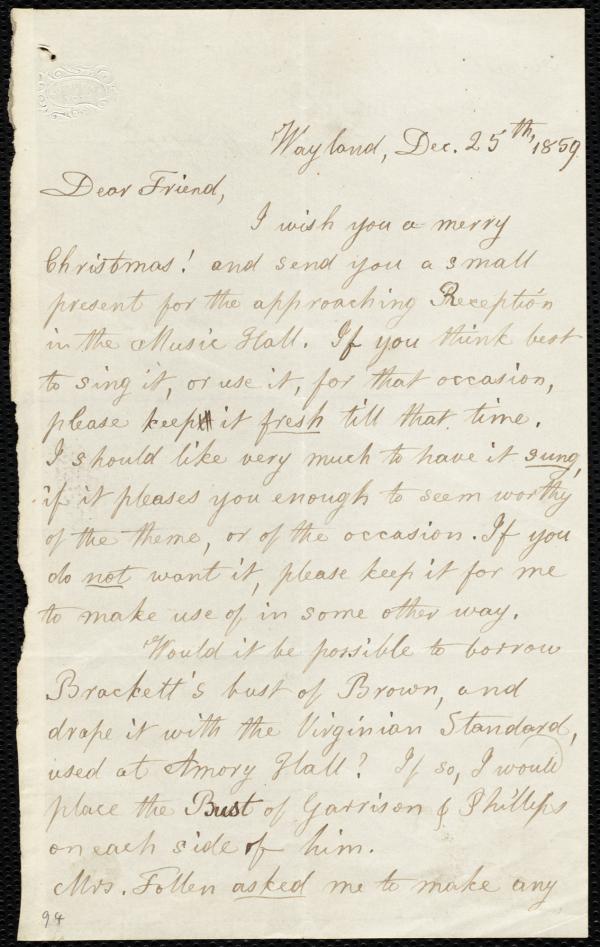 Wayland, Dec. 25th, 1859.
Dear Friend,
I wish you a merry
Christmas! and send you a small
present for the approaching Reception
in the Music Hall. If you think best
to sing it, or use it, for that occasion,
please keep it fresh till that time.
I should like very much to have it sung,
if it pleases you enough to seem worthy
of the theme, or of the occasion. If you
do not want it, please keep it for me
to make use of in some other way.
Would it be possible to borrow
Brackett's bust of Brown, and
drape it with the Virginian Standard,
used at Amory Hall? If so, I would
place the Bust of Garrison & Phillips
on each side of him.
Mrs. Follen asked me to make any
94